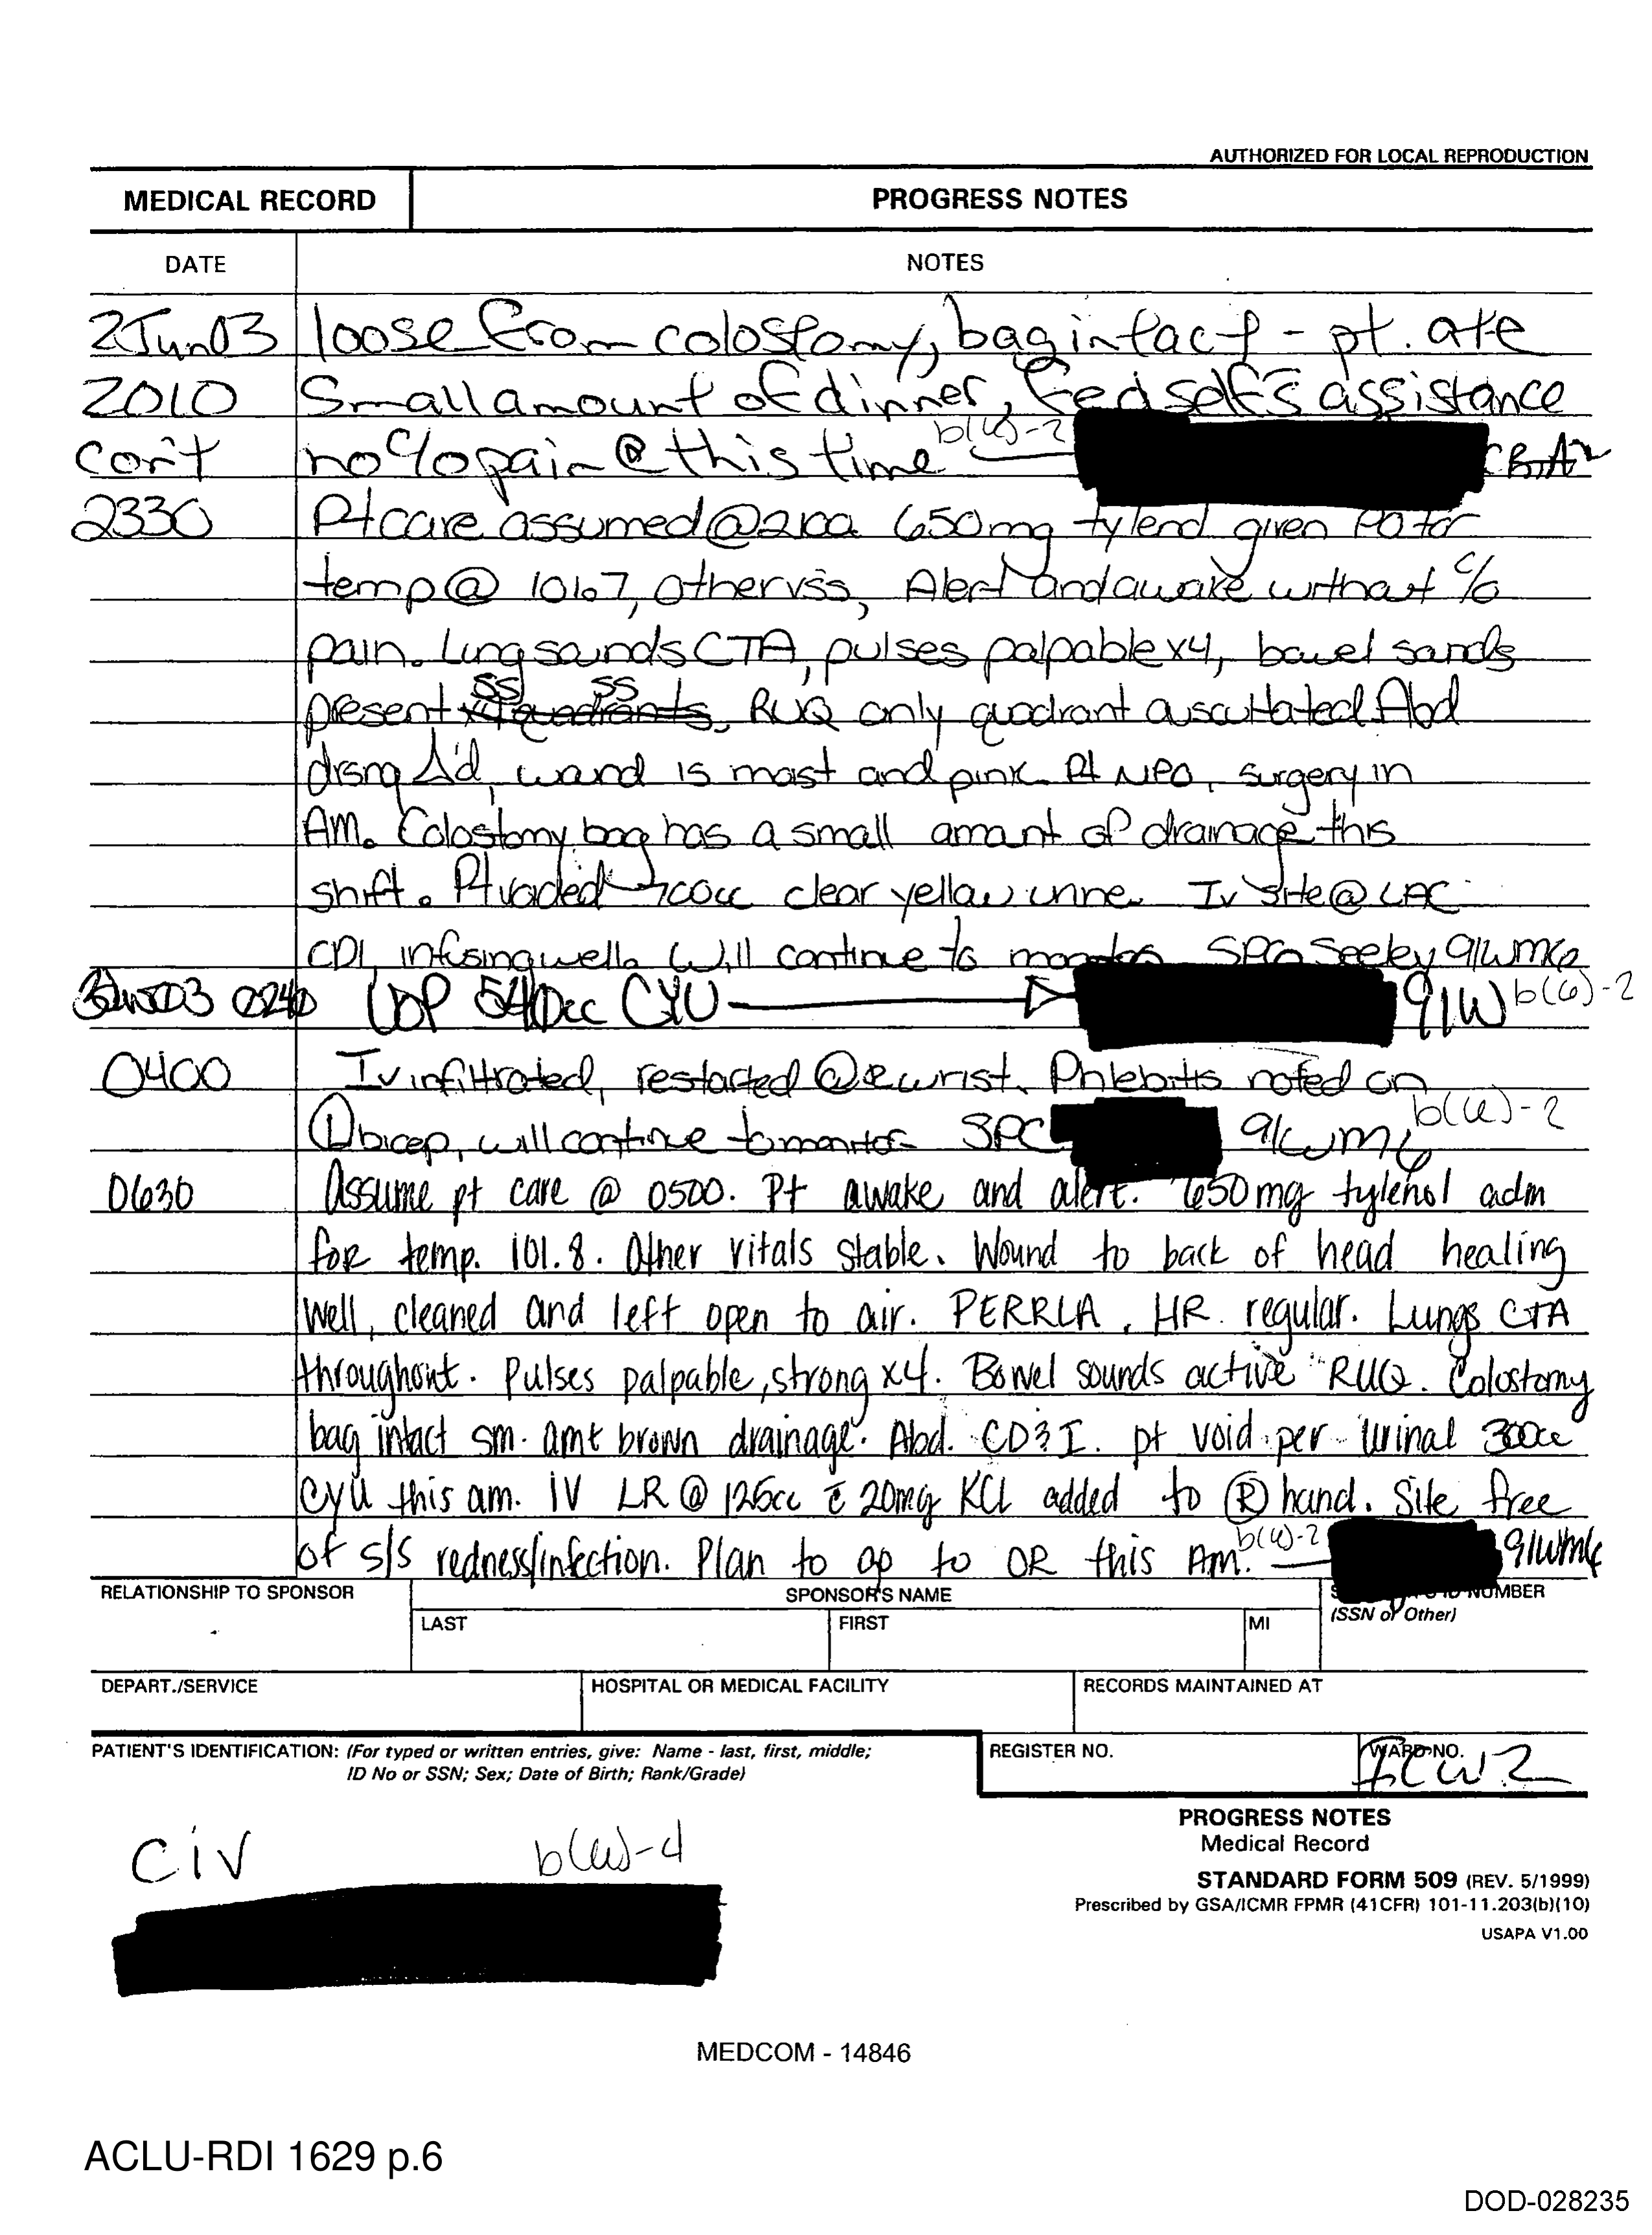 AUTHORIZED FOR LOCAL REPRODUCTION
MEDICAL RECORD PROGRESS NOTES
DATE NOTES
2Jun03 loose from colostomy, bag intact - pt. ate
2010 Small amount of dinner, fed self s̄ assistance
con't no c/o pain @ this time b(6)-2
2330 Pt care assumed @ 2100. 650mg tylenol given PO for
temp @ 101.7, other vss, Alert and awake without c/o
pain. Lung sounds CTA, pulses palpable x4, bowel sounds
present x4 quadrants, SS SS RUQ only quadrant auscultated Abd
drsng Δ'd, wound is moist and pink. Pt NPO, surgery in
AM. Colostomy bag has a small amount of drainage this
shift. Pt voided 700cc clear yellow urine. IV site @ LAC
CDI, infusing well. Will continue to monitor SPC Seeley 91WM6
3Jun03 0240 UOP 540cc CYU 91W b(6)-2
0400 IV infiltrated, restarted @ R wrist. Phlebitis noted on
Ⓛ bicep, will continue to monitor SPC 91WM6 b(6)-2
0630 Assume pt care @ 0500. Pt awake and alert. 650mg tylenol adm
for temp. 101.8. Other vitals stable. Wound to back of head healing
well, cleaned and left open to air. PERRLA, HR regular. Lungs CTA
throughout. Pulses palpable, strong x4. Bowel sounds active RUQ. Colostomy
bag intact sm. amt brown drainage. Abd. CD&I. pt void per urinal 300cc
CYU this am. IV LR @ 125cc c̄ 20mg KCL added to Ⓡ hand. Site free
of s/s redness/infection. Plan to go to OR this AM. b(6)-2 91WM6
RELATIONSHIP TO SPONSOR SPONSOR'S NAME ID NUMBER
LAST FIRST MI (SSN or Other)
DEPART./SERVICE HOSPITAL OR MEDICAL FACILITY RECORDS MAINTAINED AT
PATIENT'S IDENTIFICATION: (For typed or written entries, give: Name - last, first, middle; REGISTER NO. WARD NO.
ID No or SSN; Sex; Date of Birth; Rank/Grade) ICW2
PROGRESS NOTES
Medical Record
civ b(6)-4
STANDARD FORM 509 (REV. 5/1999)
Prescribed by GSA/ICMR FPMR (41CFR) 101-11.203(b)(10)
USAPA V1.00
MEDCOM - 14846
ACLU-RDI 1629 p.6
DOD-028235